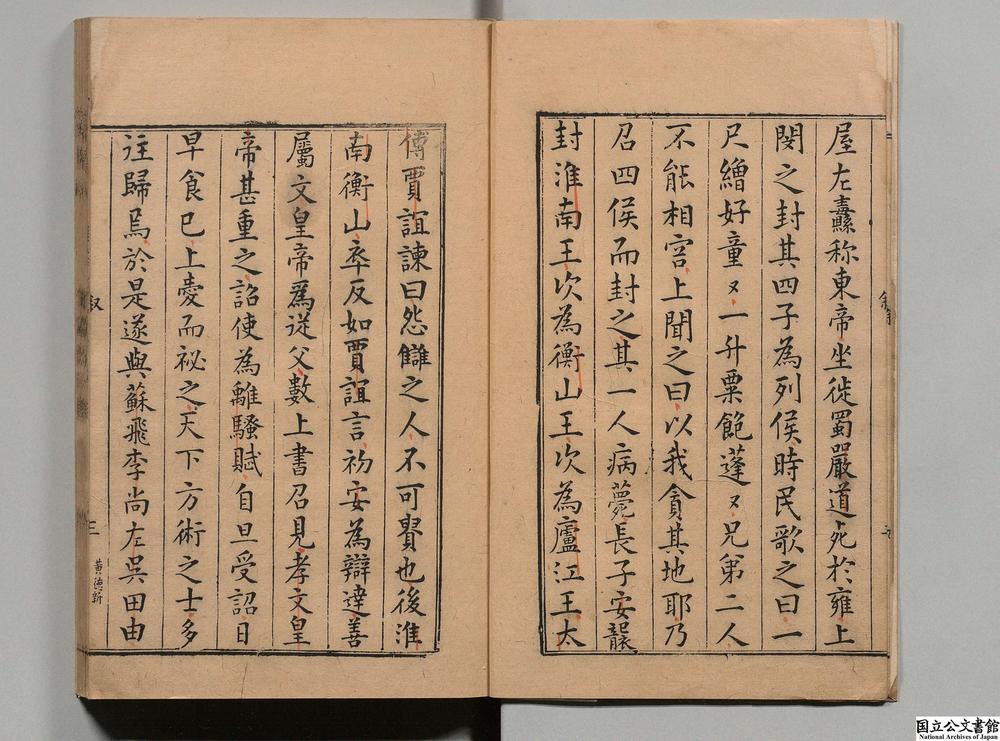 屋左纛称東帝坐徙蜀嚴道死於雍上
閔之封其四子為列侯時民歌之曰一
尺繒好童〻一升粟飽蓬〻兄弟二人
不能相容上聞之曰以我貪其地耶乃
召四侯而封之其一人病薨長子安襲
封淮南王次為衡山王次為廬江王太
傅賈誼諫曰怨讎之人不可貴也後淮
南衡山卒反如賈誼言初安為辯達善
屬文皇帝為從父數上書召見孝文皇
帝甚重之詔使為離騷賦自旦受詔日
早食已上愛而祕之天下方術之士多
往歸焉於是遂與蘇飛李尚左吳田由
叙
三
黃德新
国立公文書館
National Archives of Japan